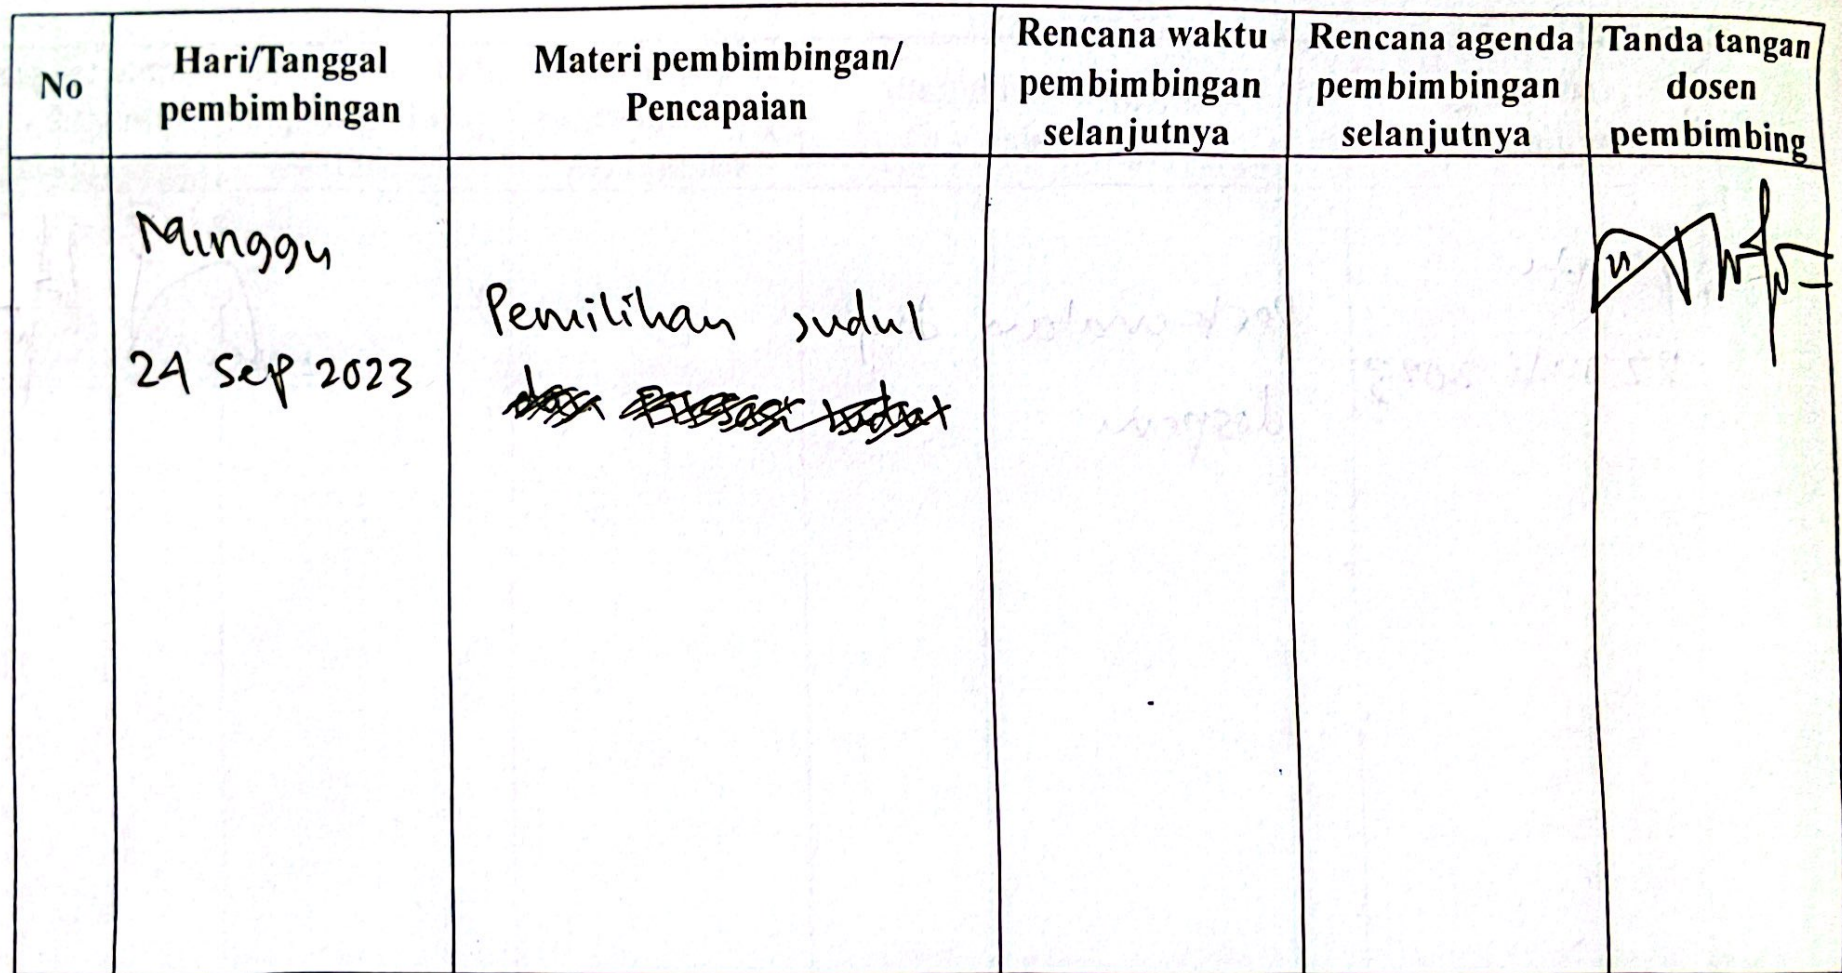 No
Hari/Tanggal
pembimbingan
Materi pembimbingan/
Pencapaian
Rencana waktu
pembimbingan
selanjutnya
Rencana agenda
pembimbingan
selanjutnya
Tanda tangan
dosen
pembimbing
Minggu
24 Sep 2023
Pemilihan judul